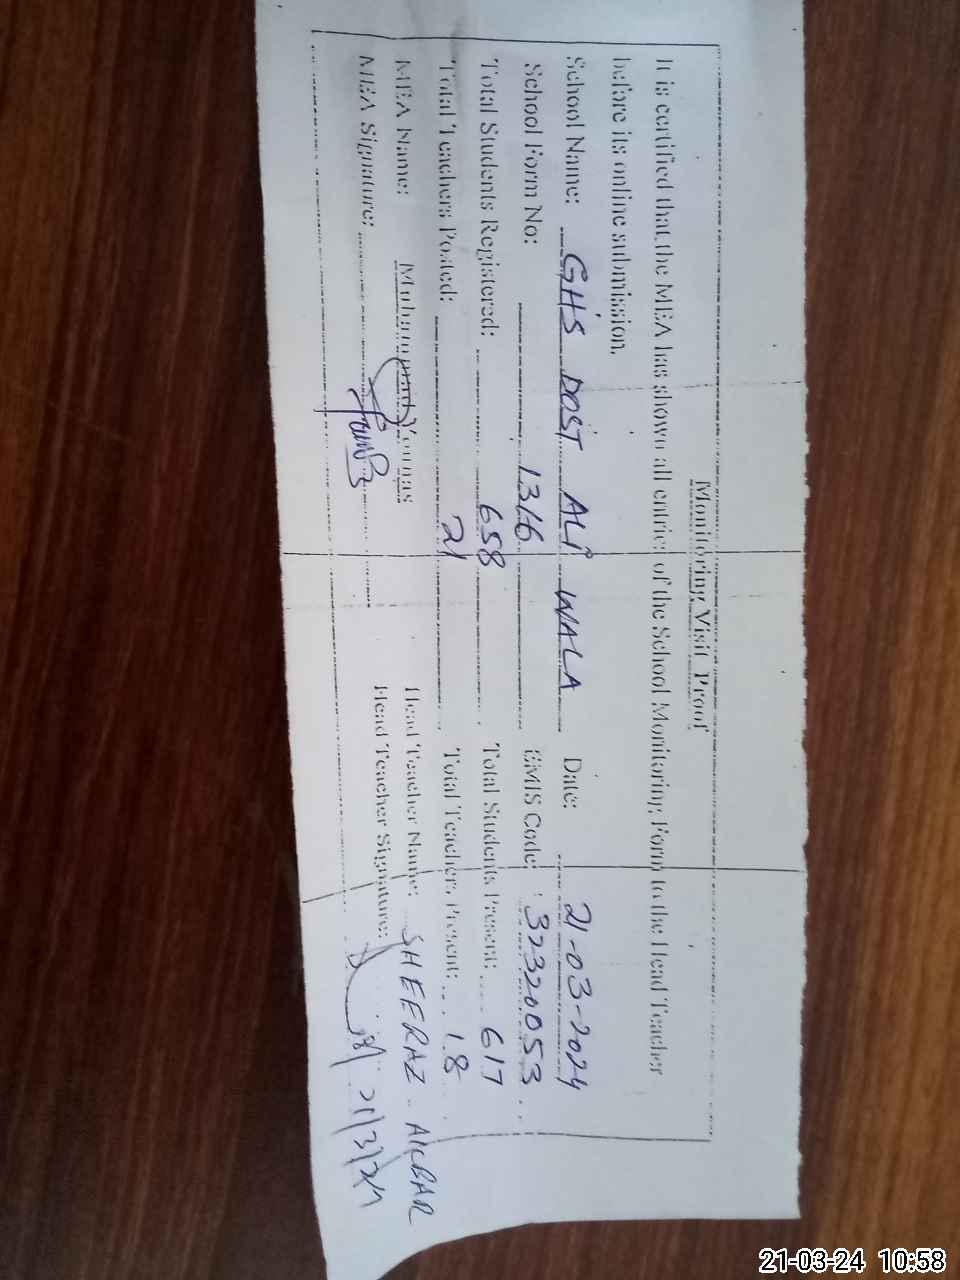 Monitoring Visit Proof
It is certified that the MEA has shown all entries of the School Monitoring Form to the Head Teacher
before its online submission.
School Name: GHS DOST ALI WALA Date: 21-03-2024
School Form No: 1316 EMIS Code: 32320053
Total Students Registered: 658 Total Students Present: 617
Total Teachers Posted: 21 Total Teachers Present: 18
MEA Name: Muhammad Younas Head Teacher Name: SHEERAZ AKBAR
MEA Signature: Head Teacher Signature: 21/3/24
21-03-24 10:58